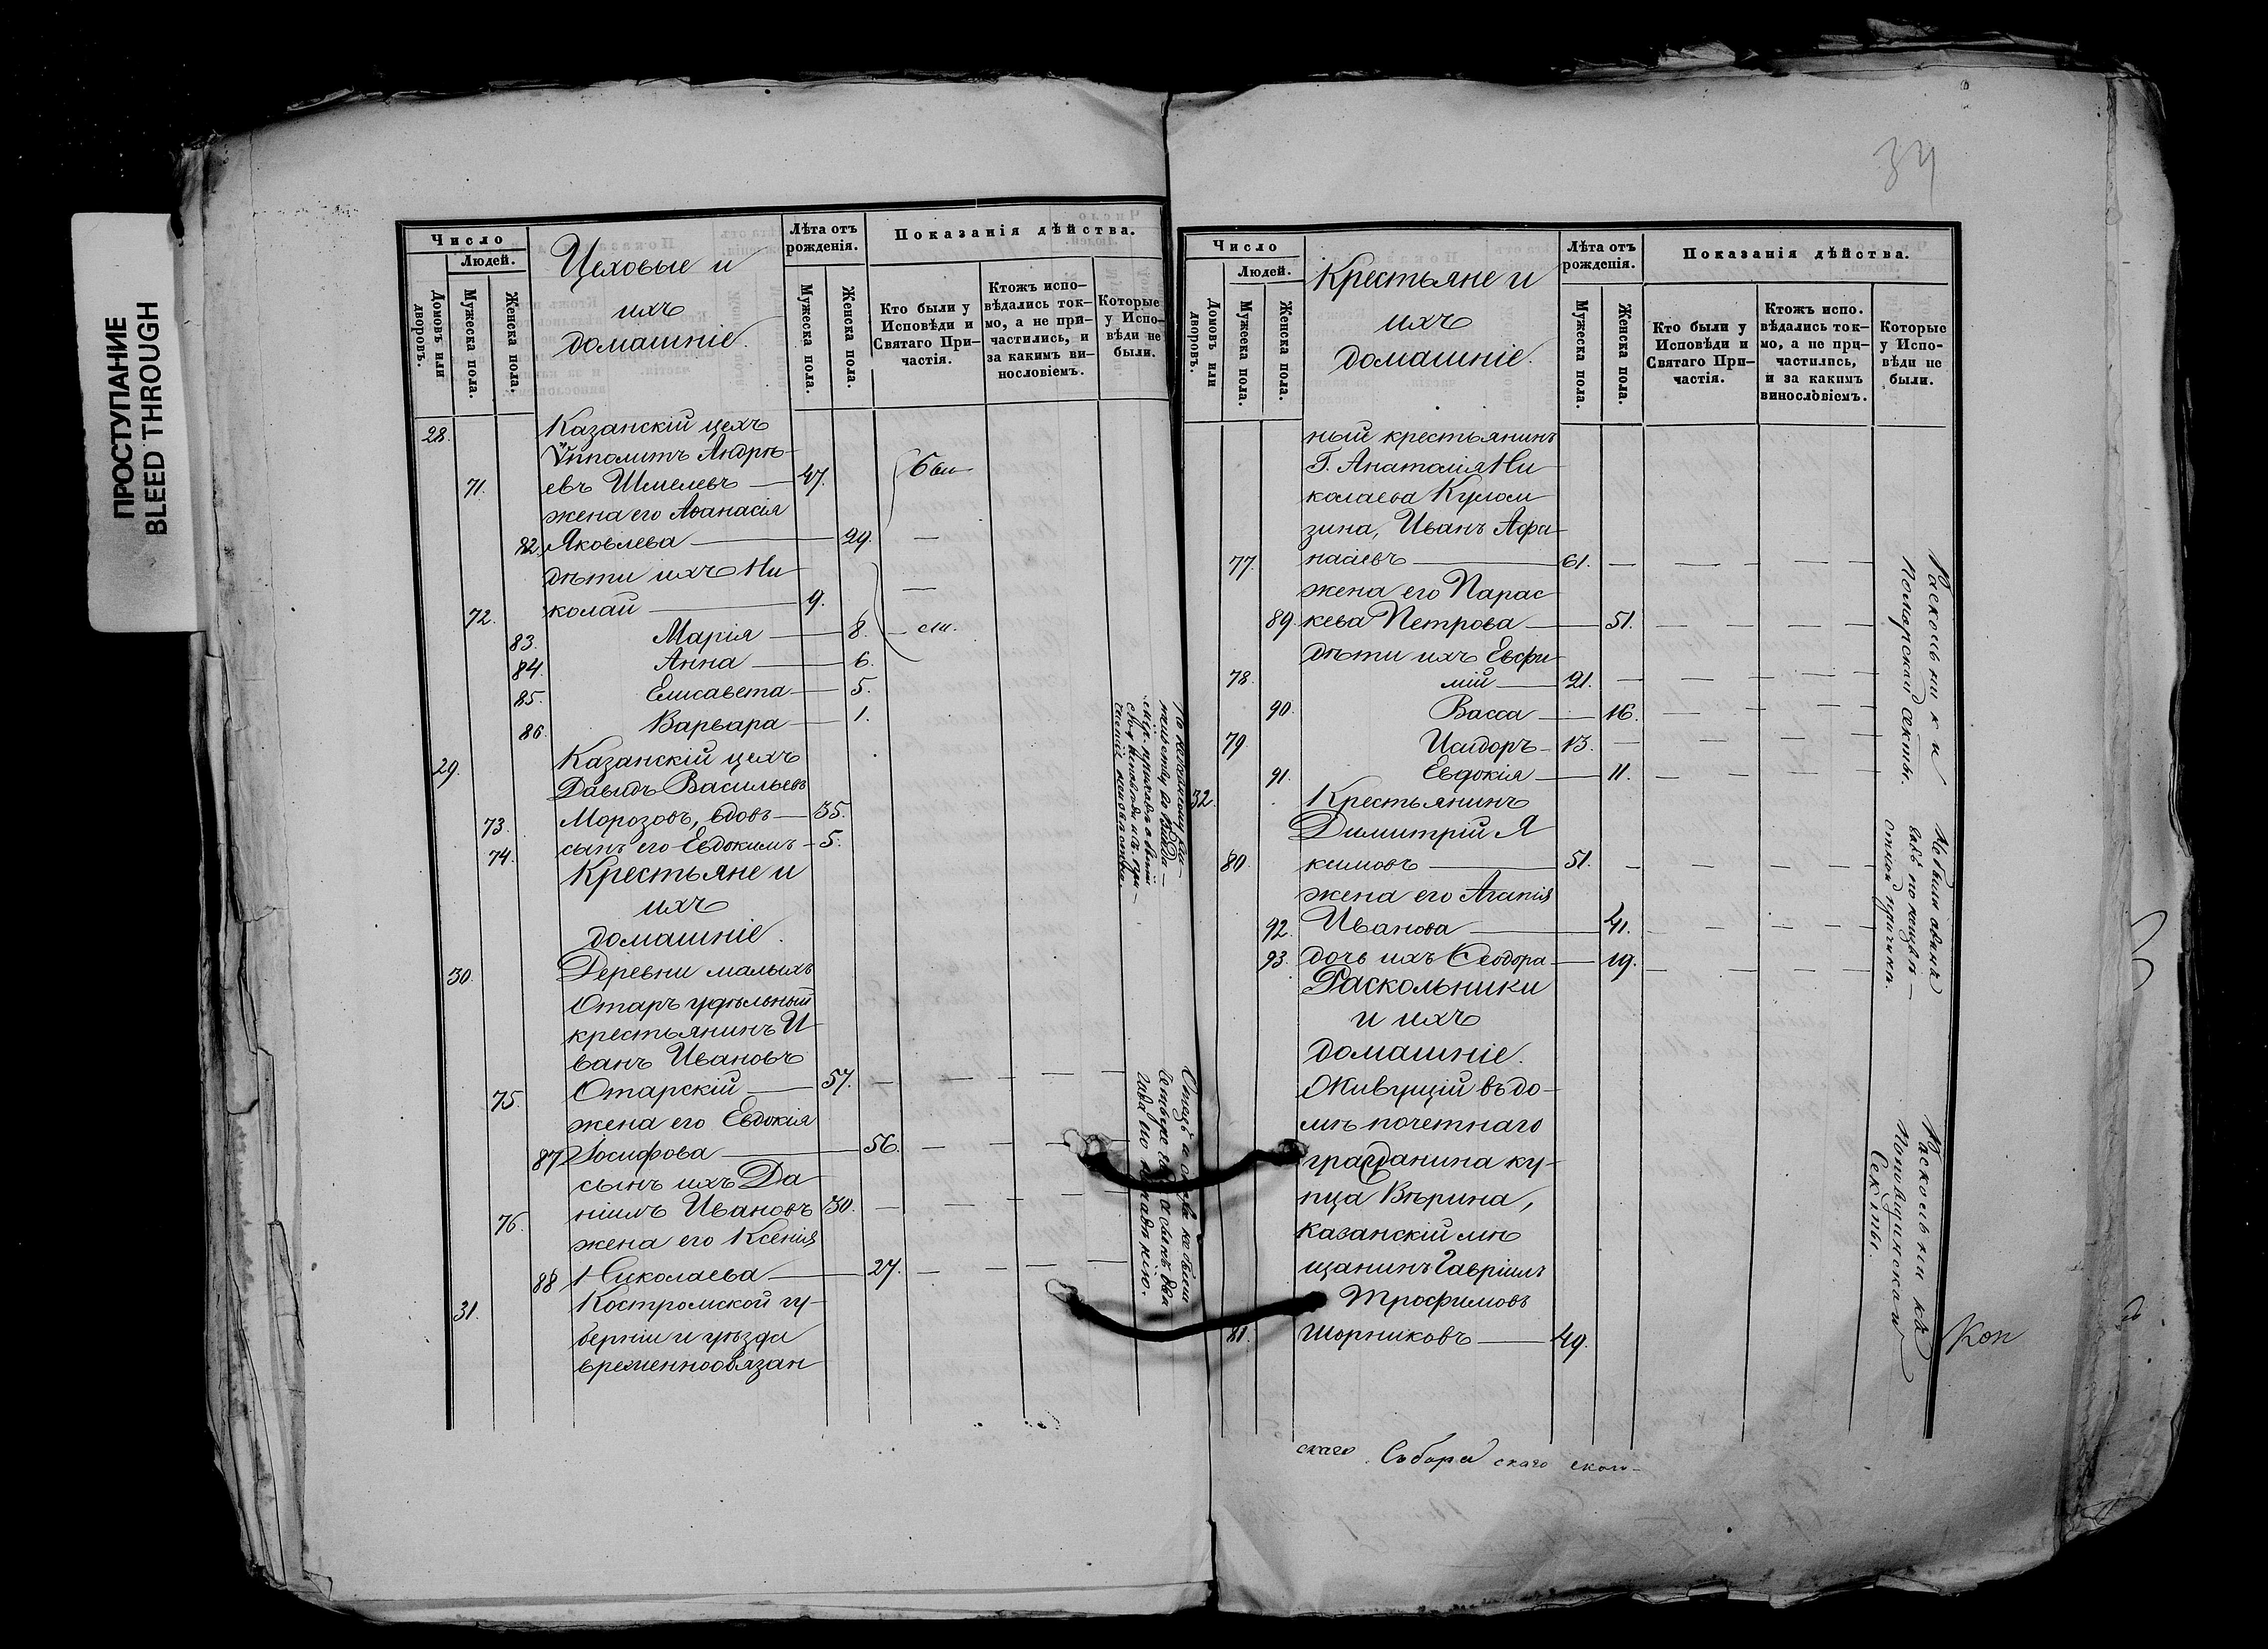 ПРОСТУПАНИЕ
BLEED THROUGH
34
Число
Людей.
Домовъ или дворовъ.
Мужеска пола.
Женска пола.
Цеховые и
ихъ
домашніе.
Лѣта отъ рожденія.
Мужеска пола.
Женска пола.
Показанія дѣйства.
Кто были у Исповѣди и Святаго Причастія.
Ктожъ исповѣдались токмо, а не причастились, и за какимъ винословіемъ.
Которые у Исповѣди не были.
28. Казанскій цехъ
Ѵпполитъ Андрѣ-
71. евъ Шмелевъ — 47. Были
жена его Аѳанасія
82. Яковлева — 29. —
дѣти ихъ Ни
72. колай — 9. —
83. Марія — 8. —
84. Анна — 6.
85. Елисавета — 5.
86. Варвара — 1.
29. Казанскій цехъ
Давидъ Васильевъ
73. Морозовъ, вдовъ — 35.
74. сынъ его Евдокимъ — 5.
Крестьяне и
ихъ
домашніе.
30. Деревни малыхъ
Отаръ удѣльный
крестьянинъ И
ванъ Ивановъ
75. Отарскій — 57. — — — —
жена его Евдокія
87. Іосифова — 56. — — —
сынъ ихъ Да
76. ніилъ Ивановъ 30. — — — —
жена его Ксенія
88 Николаева — 27. — — — —
31. Костромской гу-
берніи и уѣзда
временнообязан
Число
Людей.
Домовъ или дворовъ.
Мужеска пола.
Женска пола.
Крестьяне и
ихъ
домашніе.
Лѣта отъ рожденія.
Мужеска пола.
Женска пола.
Показанія дѣйства.
Кто были у Исповѣди и Святаго Причастія.
Ктожъ испо. вѣдались токмо, а не причастились, и за какимъ винословіемъ.
Которые у Исповѣди не были.
ный крестьянинъ
Г. Анатолія Ни
колаева Кулом
зина, Иванъ Афа
77. насіевъ — 61. — — — —
жена его Парас
89. кева Петрова — 51. — — — —
дѣти ихъ Евфи
78. мій — 21. — — — —
90. Васса — 16. — — — —
79. Исидоръ — 13. — — — —
91. Евдокія — 11. — — — —
32. Крестьянинъ
Димитрій Я
80. кимовъ — 51. — — — —
жена его Агапія
92. Иванова — 41. — — — —
93. дочь ихъ Ѳеодора — 19. — — — —
Раскольники
и ихъ
домашніе.
Живущій въ до-
мѣ почетнаго
гражданина ку-
пца Вѣрина,
казанскій мѣ
щанинъ Гавріилъ
Трофимовъ
81. Шорниковъ — 49.
Раскольники
Поморской секты.
Раскольникъ
Секты.
Кон
скаго Собора скаго